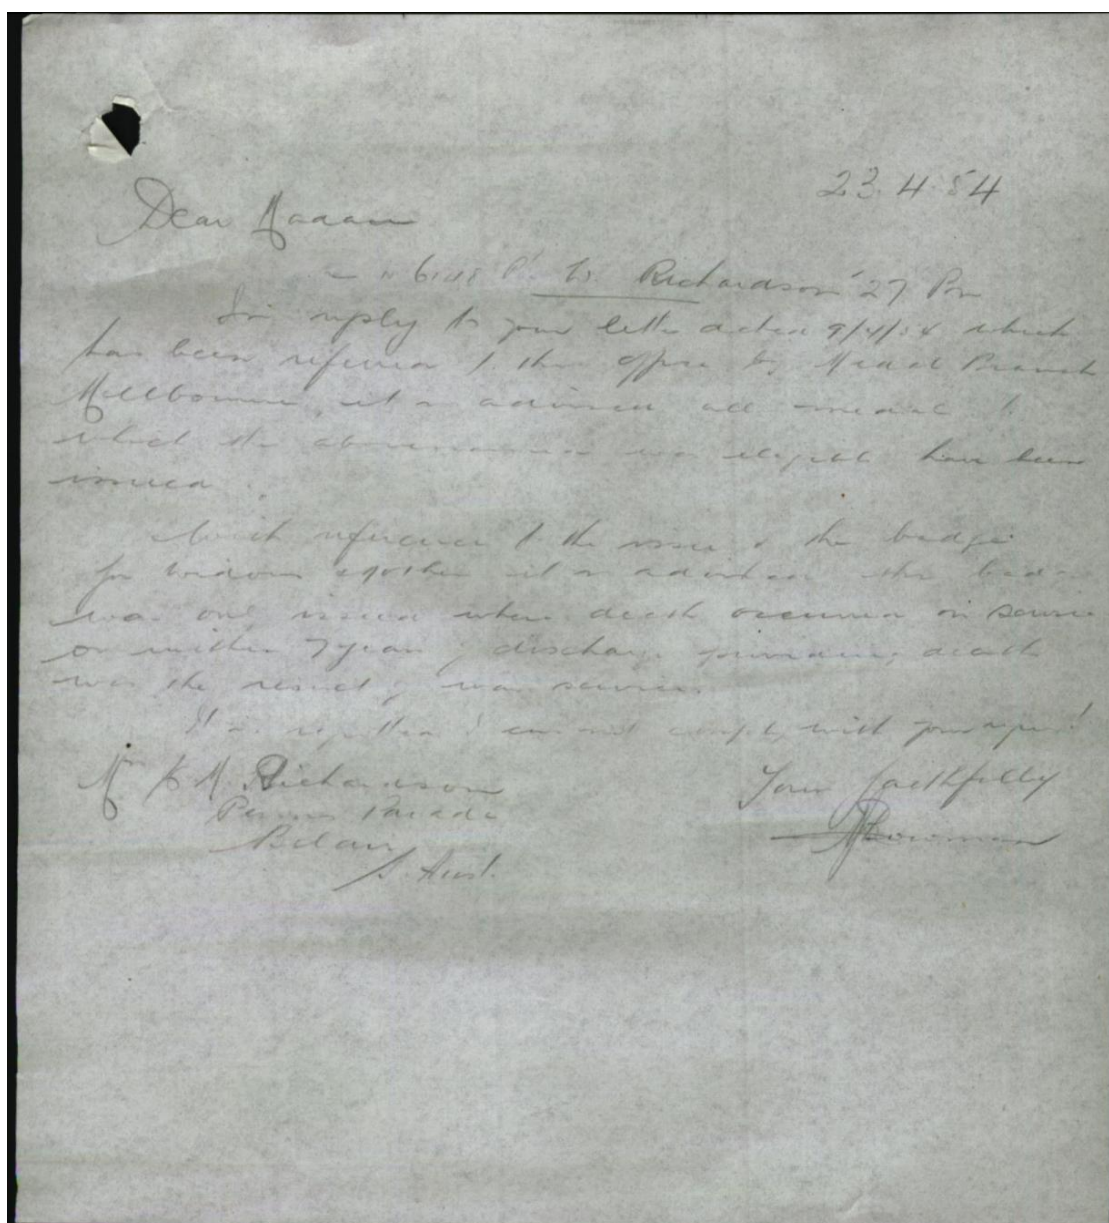 23.4.54
Dear Madam
Richardson 27 Bn
In reply to your letter dated 9/4/54 which
has been referred to this office by Medal Branch
Melbourne, it is advised all medals to
which the abovenamed was eligible have been
issued.
With reference to the issue of the badge
for widows & mothers it is advised the badge
was only issued where death occurred on service
or within 7 years of discharge providing death
was the result of war service.
It is regretted I can not comply with your request
Mrs M Richardson
Parade
Belair
S. Aust.
Yours faithfully